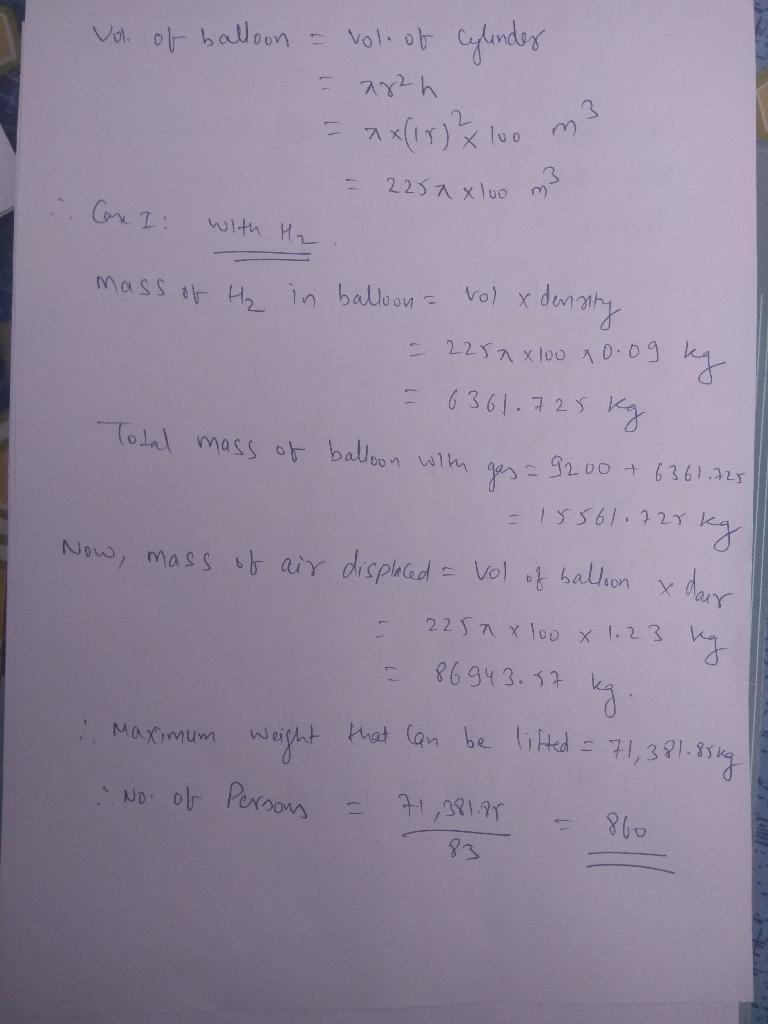 Vol. of balloon = vol. of cylinder
= πr²h
= π×(15)²×100 m³
= 225π×100 m³
∴ Case I: With H₂.
Mass of H₂ in balloon = vol × density
= 225π×100×0.09 kg
= 6361.725 kg
Total mass of balloon with gas = 9200 + 6361.725
= 15561.725 kg
Now, mass of air displaced = Vol of balloon × dair
= 225π × 100 × 1.23 kg
= 86943.57 kg.
∴ Maximum weight that can be lifted = 71,381.85kg
∴ No. of Persons = 71,381.85 / 83 = 860